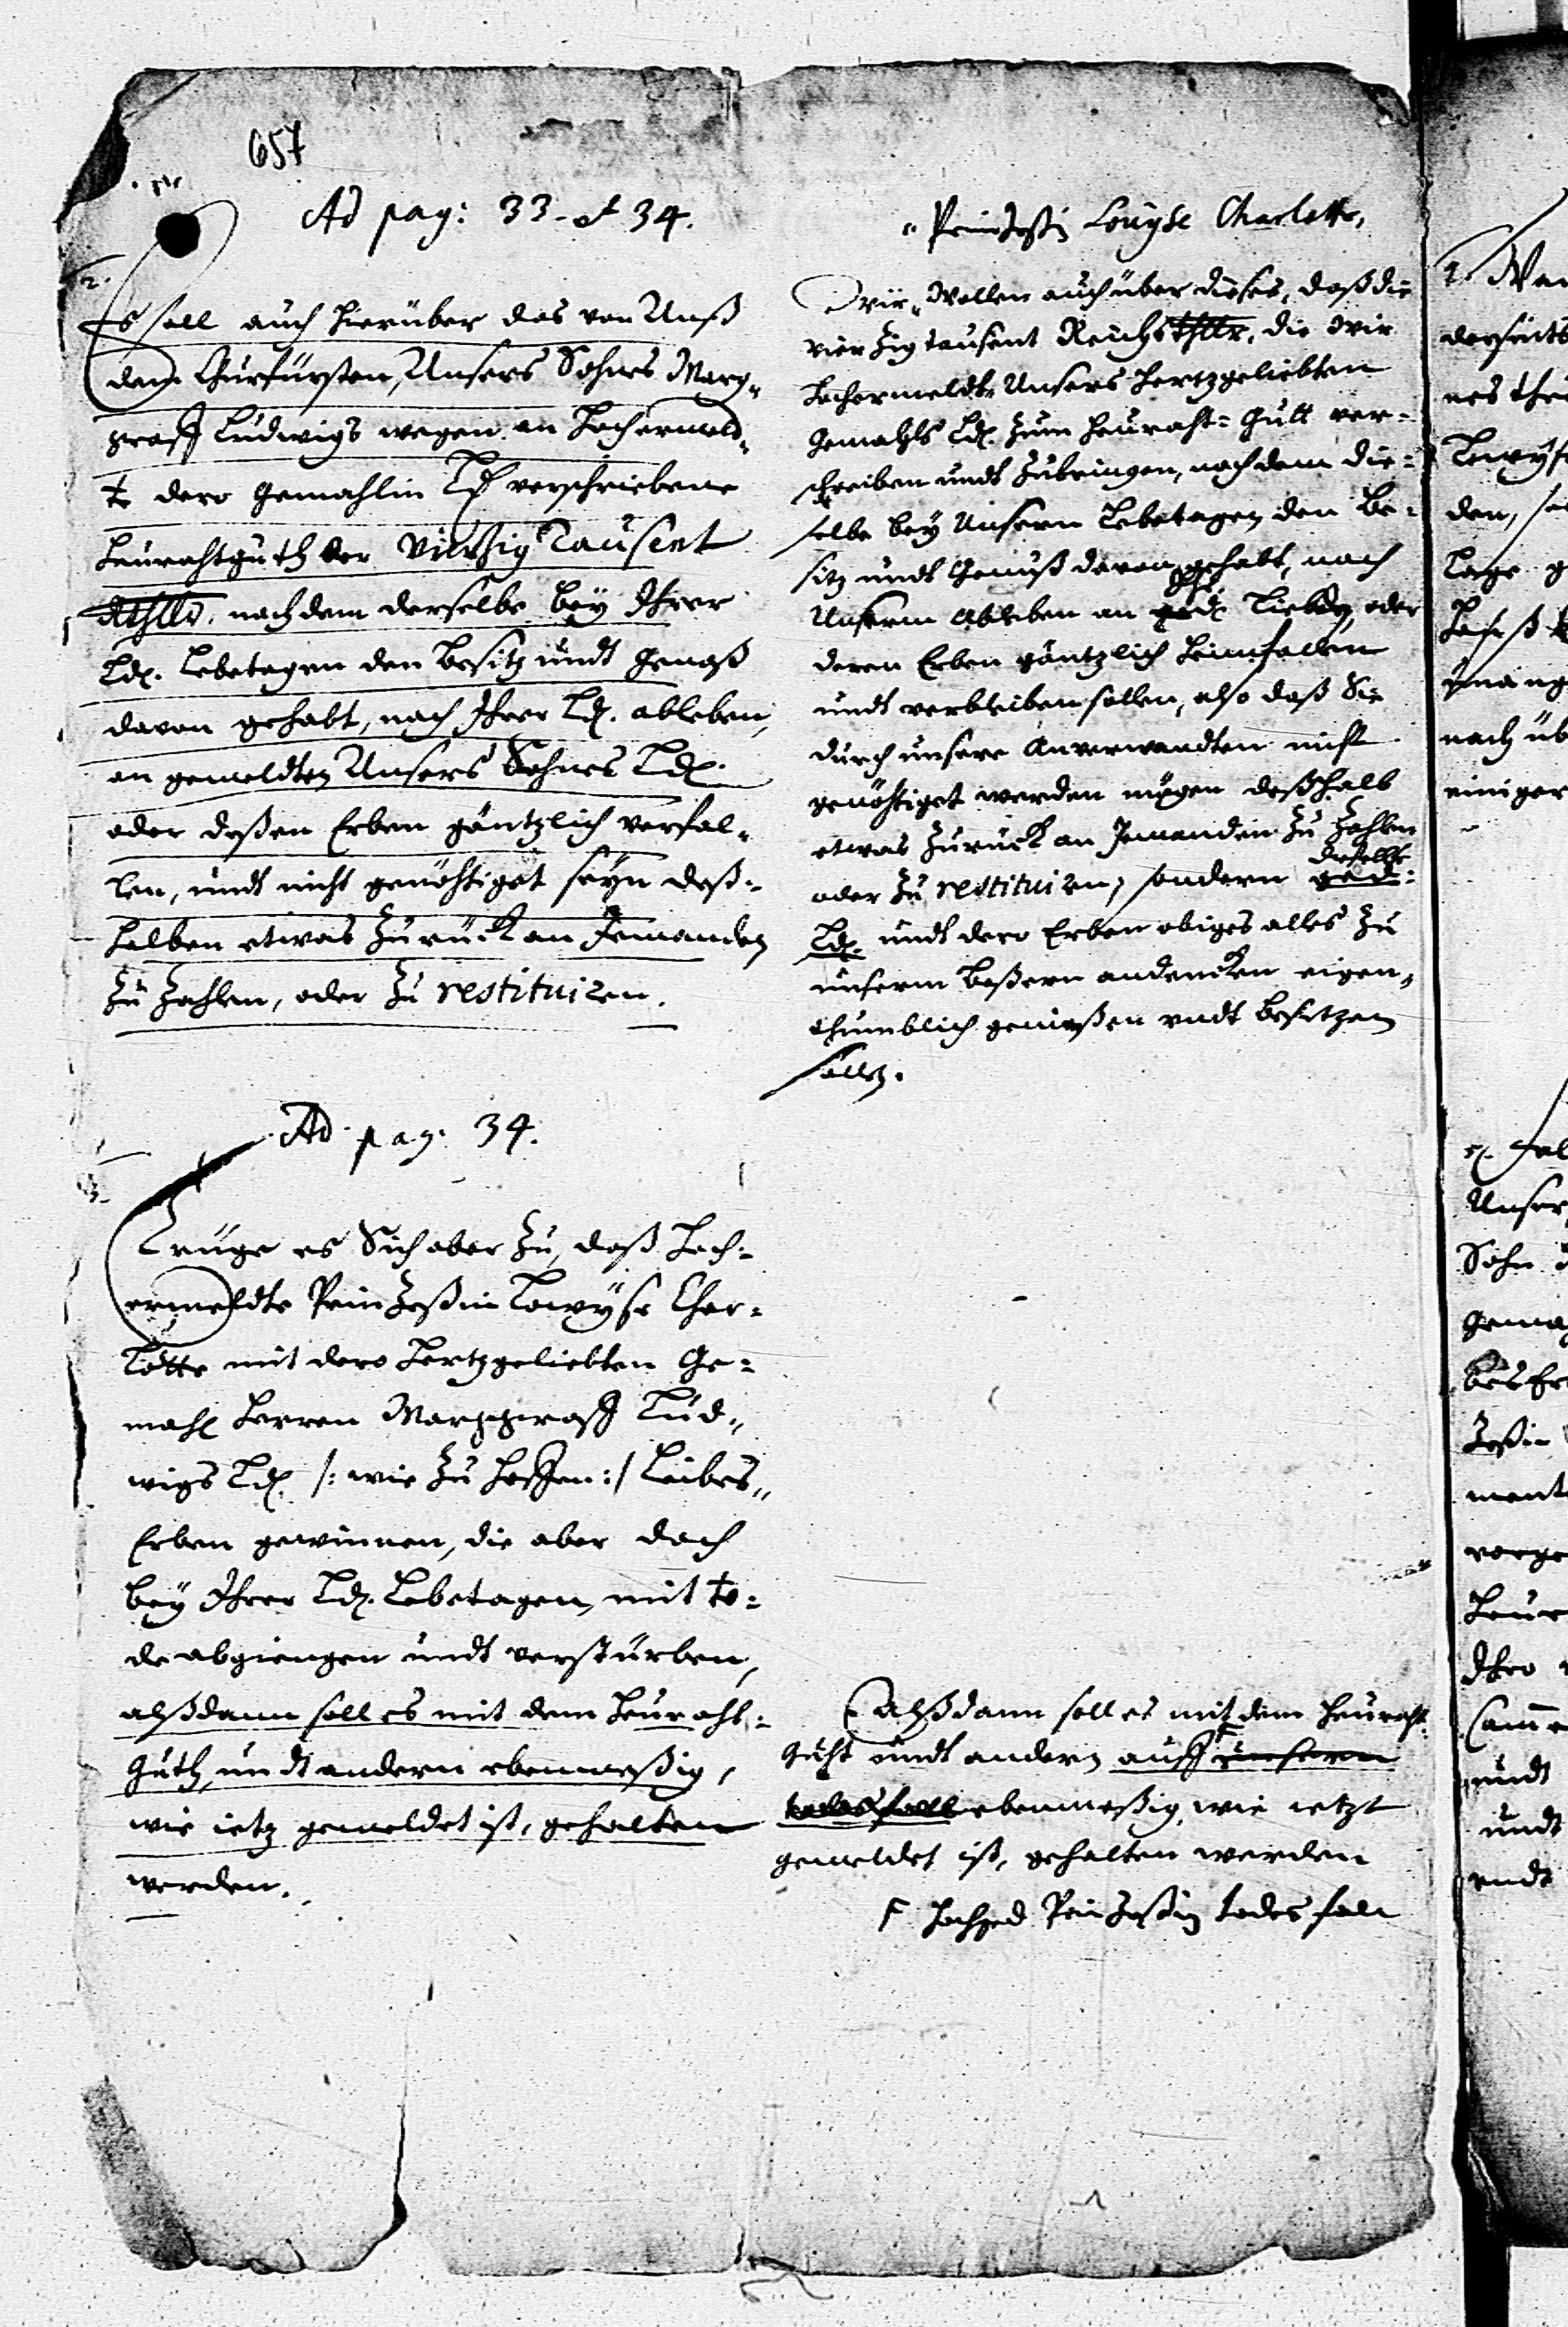 657
Ad pag: 33. et 34.
2.
Es soll auch hierüber das von Unß
dem Churfürsten, Unsers Sohnes Marg„
graff Ludwigs wegen an hochermeld„
te dero Gemahlin Ld. verschriebene
heurahtguth der Vierzig Tausent
Rthlr. nach dem derselbe bey Ihrer
Ld. Lebetagen den Besitz undt genoß
davon gehabt, nach Ihrer Ld. ableben,
an gemeldten Unsers Sohnes Ld.
oder deßen Erben gäntzlich verfal„
len, undt nicht genöhtiget seyn deß=
halben etwas zurück an Jemanden
zu zahlen, oder zu restituiren.
Ad pag: 34.
3.
Trüge es Sich aber zu, daß hoch=
ermeldte Prinzeßin Lowyse Char=
lotte mit dero hertzgeliebten Ge=
mahl herren Marggraff Lud„
wigs Ld. /: wie zu hoffen :/ Leibes„
Erben gewinnen, die aber doch
bey Ihrer Ld. Lebetagen, mit to=
de abgiengen undt verstürben,
alßdann soll es mit dem heuraht=
guth, undt andern ebenmeßig,
wie ietz gemeldet ist, gehalten
werden.
„ Prinzeßin Louyse Charlotte,
Wir „ Wollen auch über dieses, daß die
vierzig tausent Reichsthllr. die Wir
hochermeldts Unsers hertzgeliebten
Gemahls Ld. zum heuraht= Gutt ver=
schreiben undt zubringen, nach dem die=
selbe bey Unsern Lebetagen den Be=
sitz undt Genuß davon gehabt, nach
Unserm ableben an Liebden, oder
deren Erben gäntzlich heimfallen
undt verbleiben sollen, also daß Sie
durch unsere Anverwandten nicht
genöhtiget werden mögen deßhalb
etwas zurück an Jemanden zu zahlen
dieselbe
oder zu restituiren, sondern ged:
Ld. undt dero Erben obiges alles zu
unserm beßern andencken eigen„
thumblich genießen undt besitzen
sollen.
alßdann soll es mit dem heuraht=
guht undt andern auff unsern
todes fall ebenmeßig, wie ietzt
gemeldet ist, gehalten werden
F hochged Prinzeßin todes fall